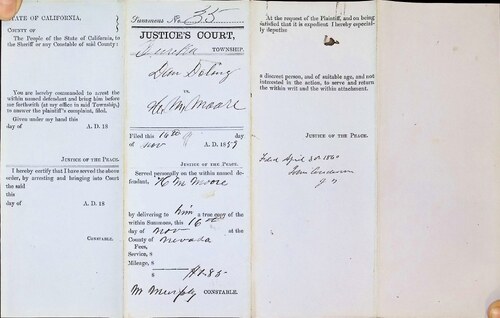 STATE OF CALIFORNIA,
COUNTY OF
The People of the State of California, to
the Sheriff or any Constable of said County:
You are hereby commanded to arrest the
within named defendant and bring him before
me forthwith (at my office in said Township,)
to answer the plaintiff's complaint, filed.
Given under my hand this
day of A. D. 18
JUSTICE OF THE PEACE.
I hereby certify that I have served the above
order, by arresting and bringing into Court
the said
this
day of A. D. 18
CONSTABLE.
Summons No. 35
JUSTICE'S COURT,
Eureka TOWNSHIP.
vs
H. M. Moore
Filed this 16th day
of Nov A. D. 1859
JUSTICE OF THE PEACE.
Served personally on the within named de-
fendant, H M Moore
by delivering to him a true copy of the
within Summons, this 16th
day of Nov at the
County of Nevada
Fees,
Service, $
Mileage, $
$
M Murphy CONSTABLE.
At the request of the Plaintiff, and on being
satisfied that it is expedient I hereby especial-
ly deputize
a discreet person, and of suitable age, and not
interested in the action, to serve and return
the within writ and the within attachment.
JUSTICE OF THE PEACE.
Filed April 30 1860
John